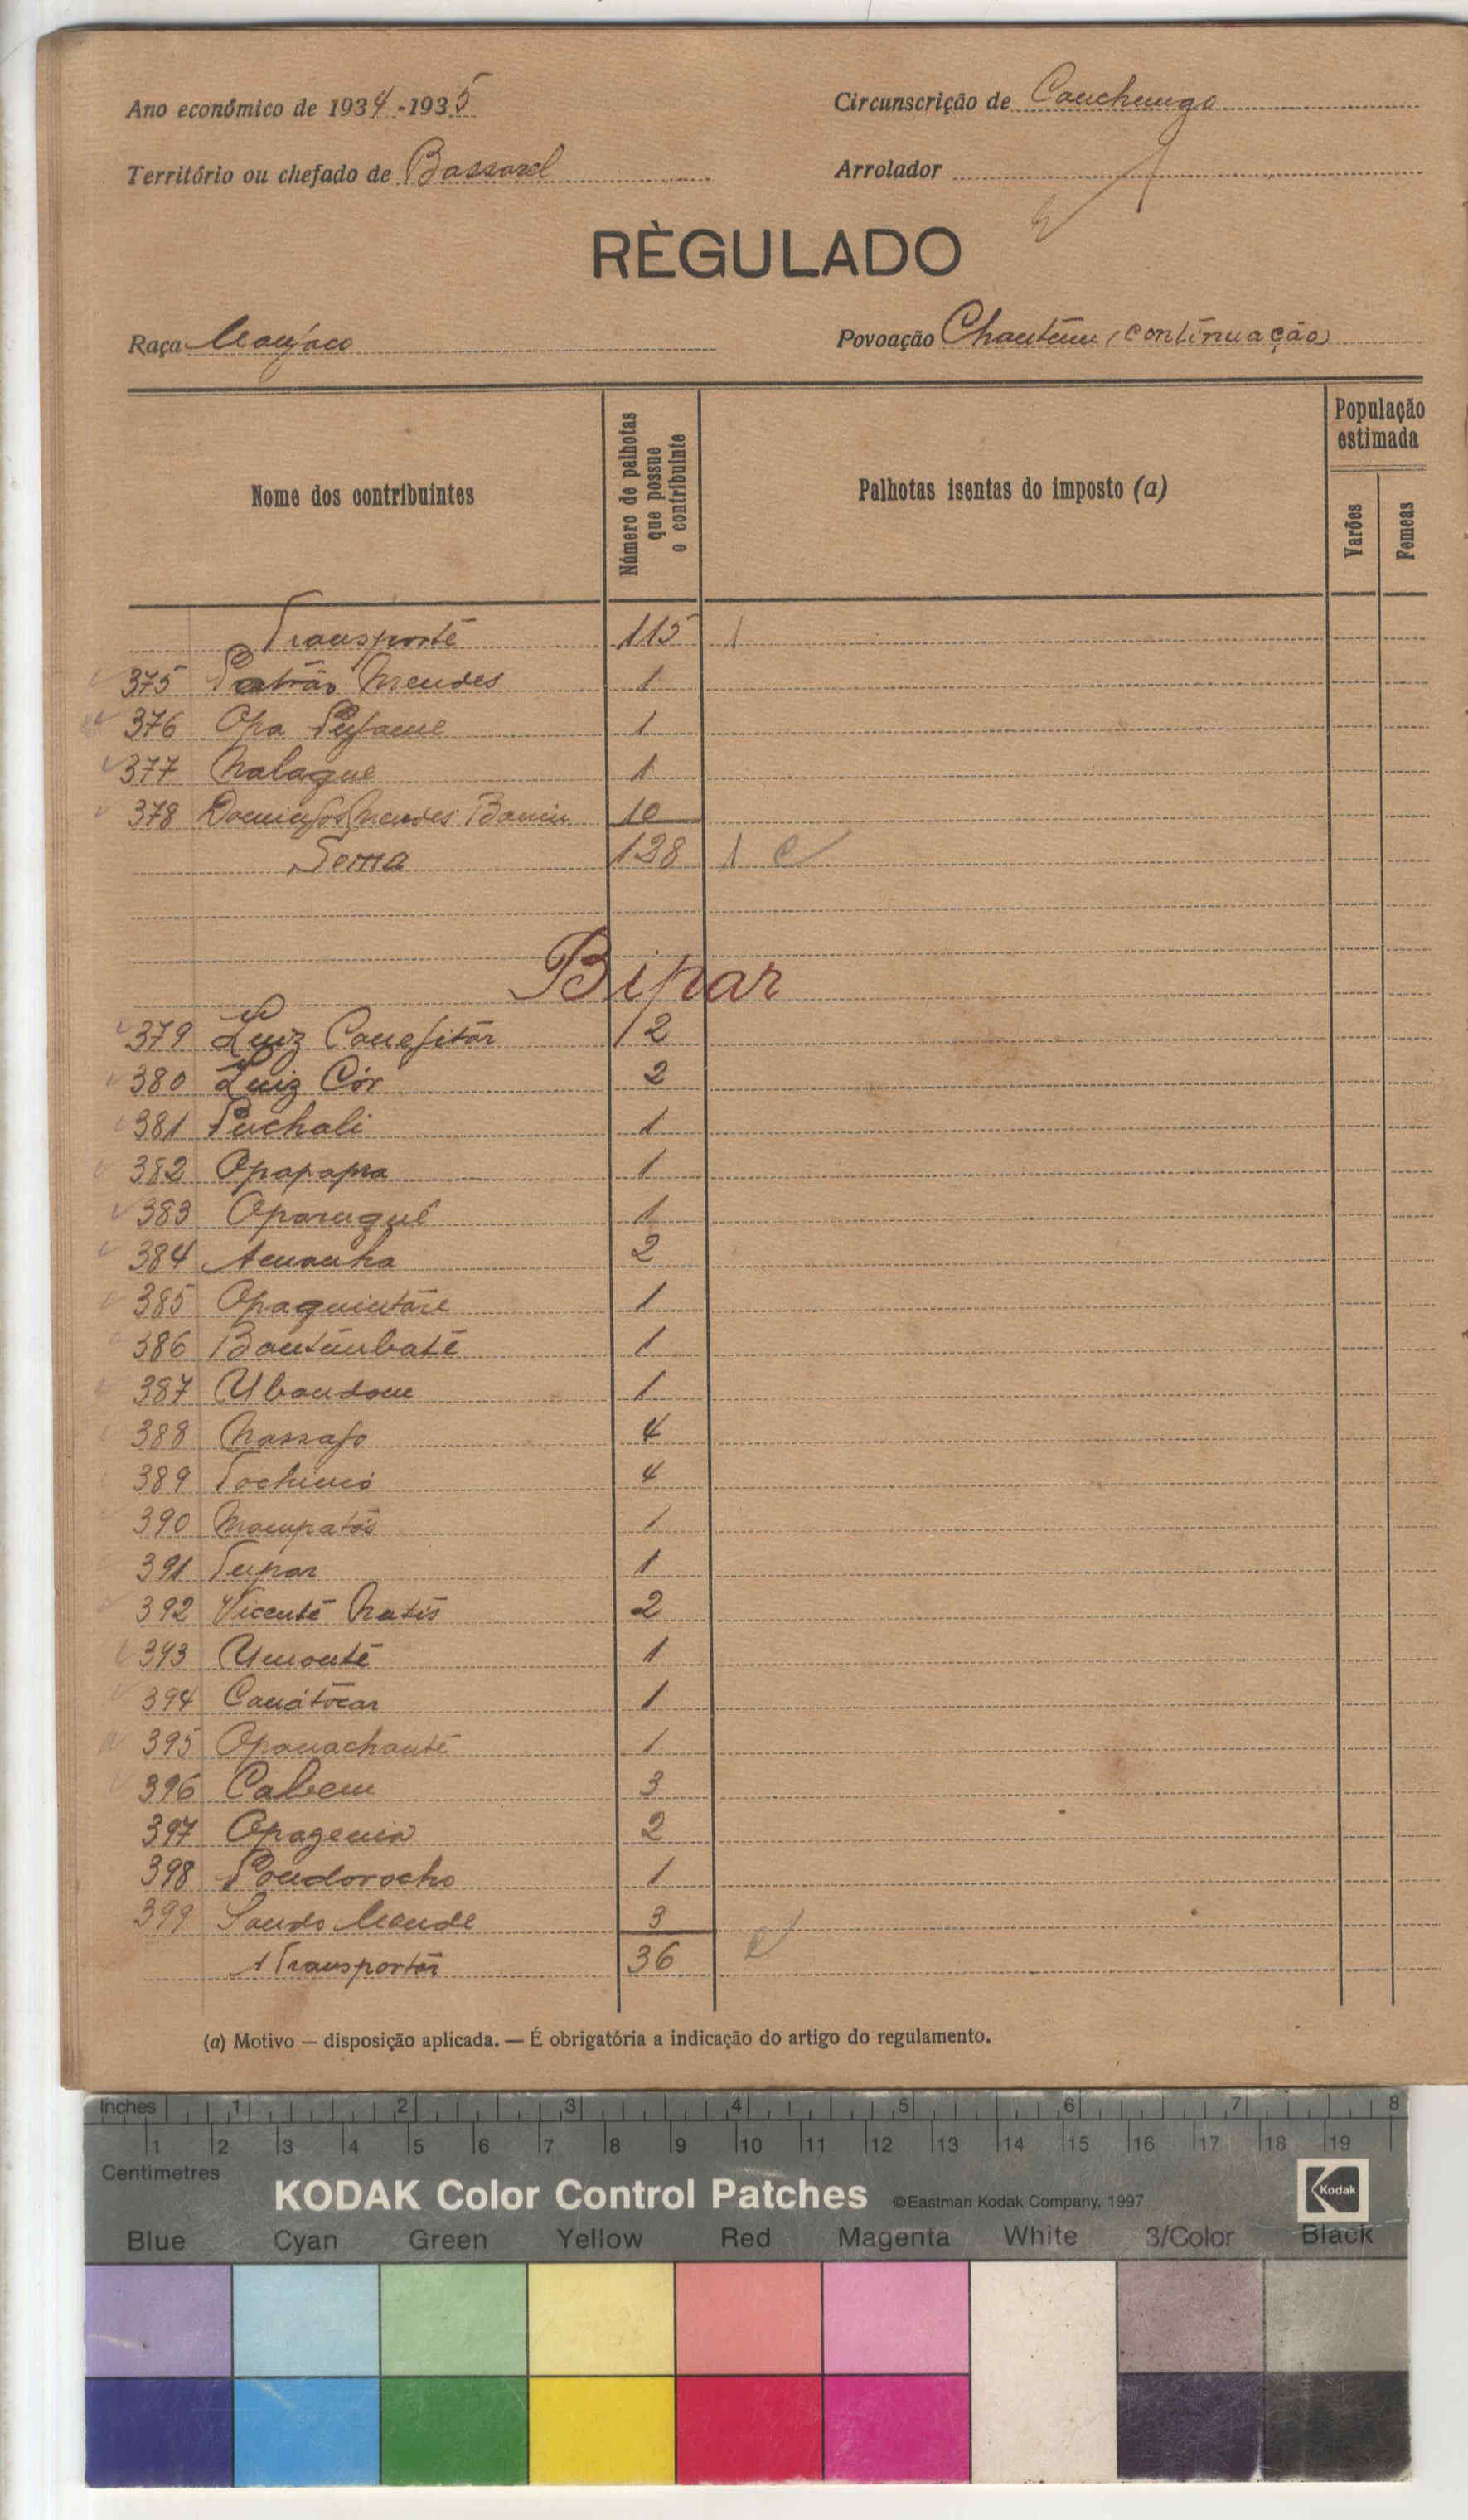 Ano económico de 1934-1935
Circunscrição de Canchungo
Território ou chefado de Bassarel
Arrolador
RÈGULADO
Raça Manjaco
Povoação Chantene (continuação)
Nome dos contribuintes
Número de palhotas que possue o contribuinte
Palhotas isentas do imposto (a)
População estimada
Varões
Femeas
Transporte 115 1
375 Patrão Mendes 1
376 Opa 1
377 Nalague 1
378 Domingos Mendes 10
Soma 128 1
Bipar
379 Luiz 2
380 Luiz Cór 2
381 Puchali 1
382 Opapapra 1
383 Oparaguê 1
384 2
385 Opaquintare 1
386 1
387 Ubandam 1
388 Nassafo 4
389 4
390 Mampatás 1
391 1
392 Vicente Natis 2
393 Umonte 1
394 Canátocar 1
395 Opanachante 1
396 Cabem 3
397 2
398 1
399 3
A Transportar 36
(a) Motivo — disposição aplicada. — É obrigatória a indicação do artigo do regulamento.
Inches 1 2 3 4 5 6 7 8
1 2 3 4 5 6 7 8 9 10 11 12 13 14 15 16 17 18 19
Centimetres
KODAK Color Control Patches ©Eastman Kodak Company, 1997 Kodak
Blue Cyan Green Yellow Red Magenta White 3/Color Black